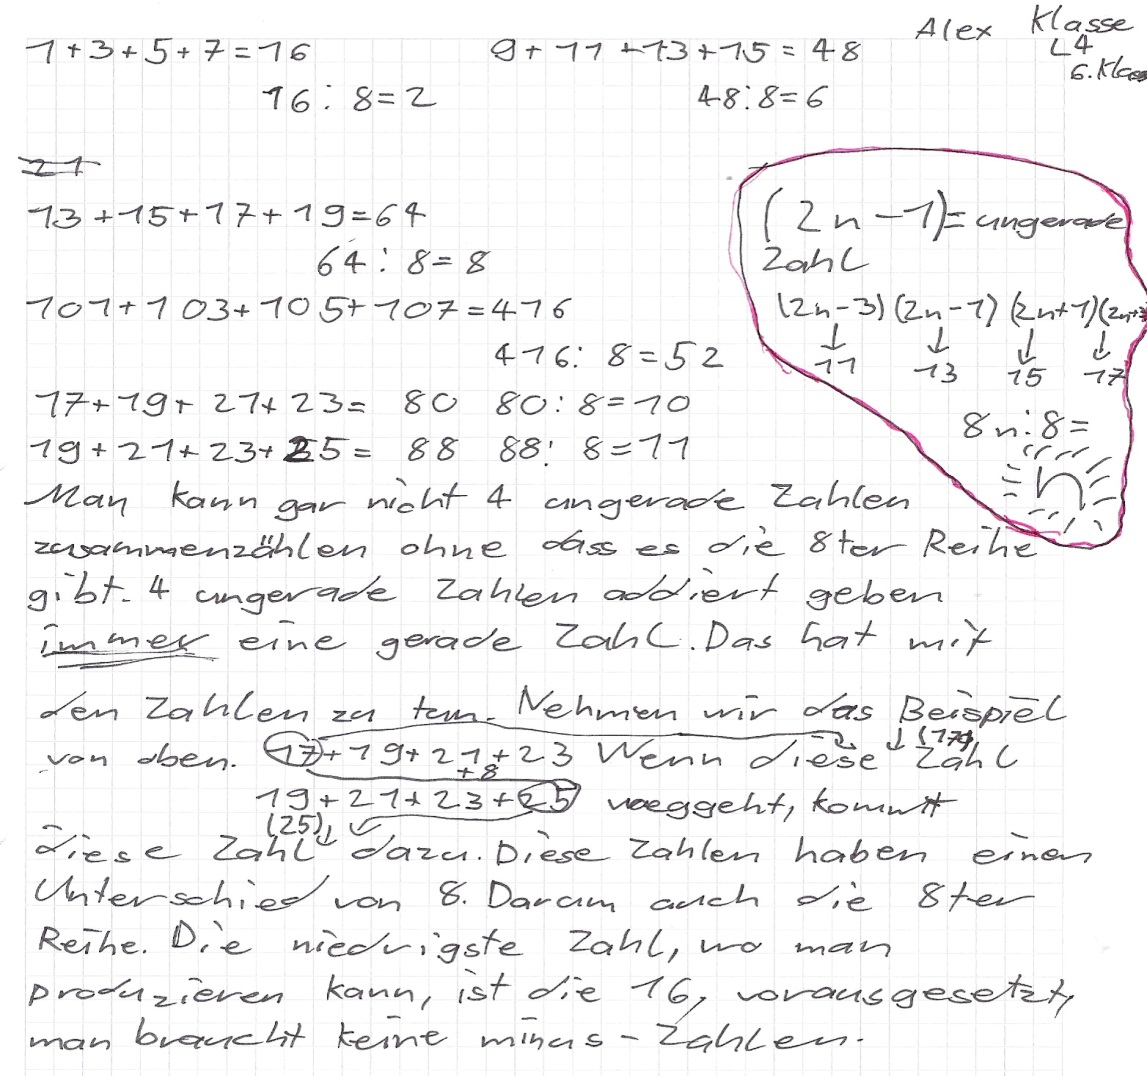 Alex Klasse
L4
6. Klasse
1+3+5+7=16 9+11+13+15=48
16:8=2 48:8=6
21
13+15+17+19=64
64:8=8
101+103+105+107=416
416:8=52
17+19+21+23= 80 80:8=10
19+21+23+25= 88 88:8=11
(2n-1)=ungerade
Zahl
(2n-3)(2n-1)(2n+1)(2n+3)
↓ ↓ ↓ ↓
11 13 15 17
8n:8=
n
Man kann gar nicht 4 ungerade Zahlen
zusammenzählen ohne dass es die 8ter Reihe
gibt. 4 ungerade Zahlen addiert geben
immer eine gerade Zahl. Das hat mit
den Zahlen zu tun. Nehmen wir das Beispiel
(17)
von oben. 17+19+21+23 Wenn diese Zahl
+8
19+21+23+25 weggeht, kommt
(25)
diese Zahl dazu. Diese Zahlen haben einen
Unterschied von 8. Darum auch die 8ter
Reihe. Die niedrigste Zahl, wo man
produzieren kann, ist die 16, vorausgesetzt,
man braucht keine minus-Zahlen.